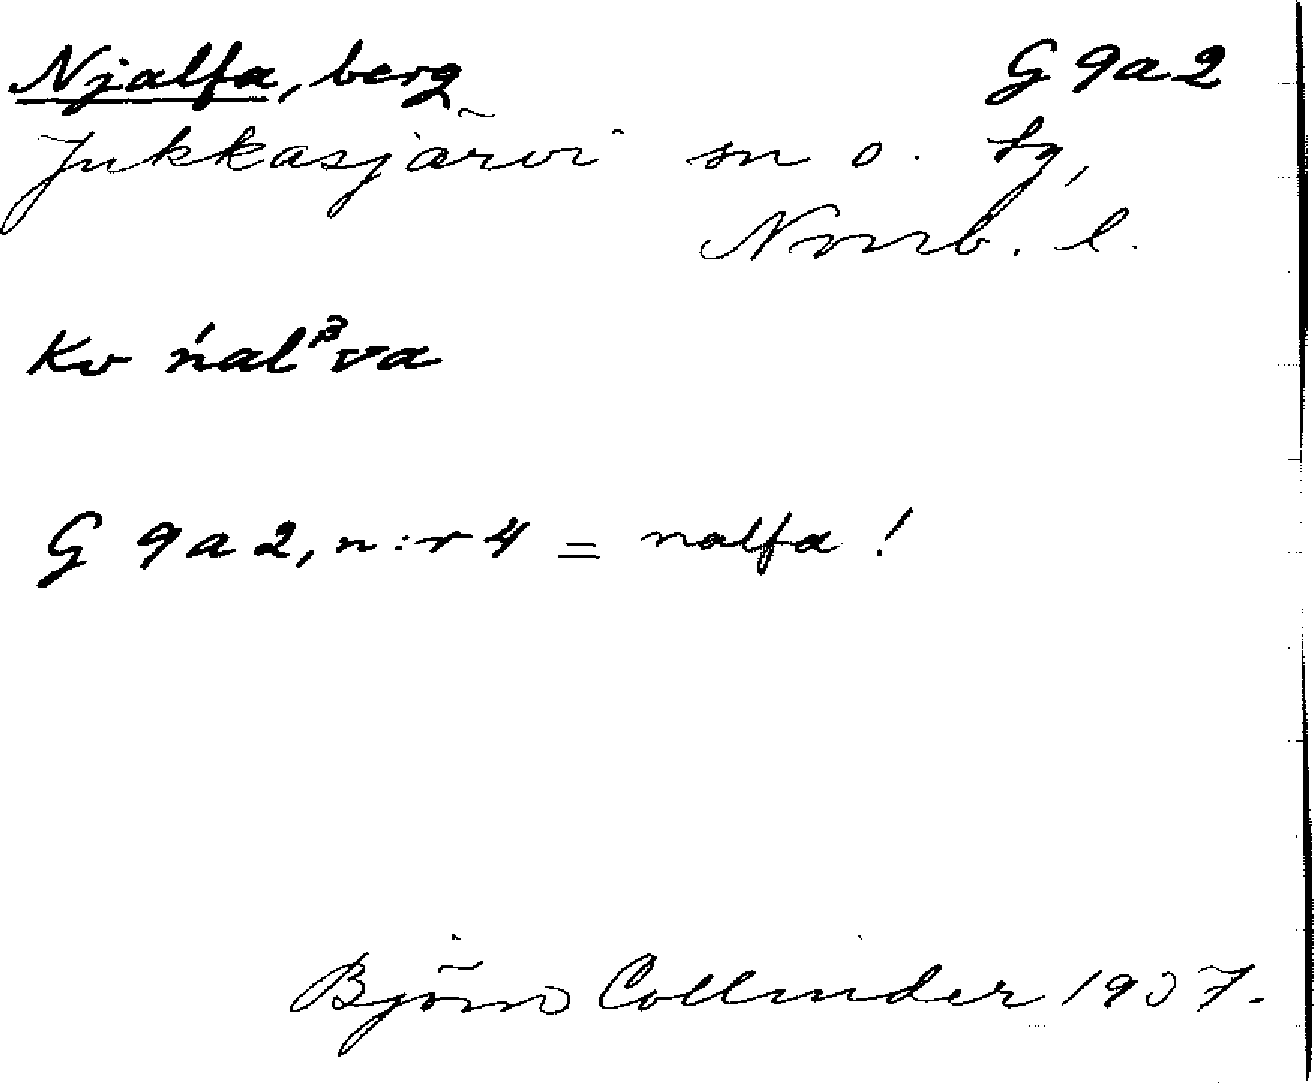 Njalfa, berg G 9a2
Jukkasjärvi sn o. tg,
Norrb. l.
Kv ńalᵝva
G 9a2, n:r 4 = nalfa!
Björn Collinder 1937.